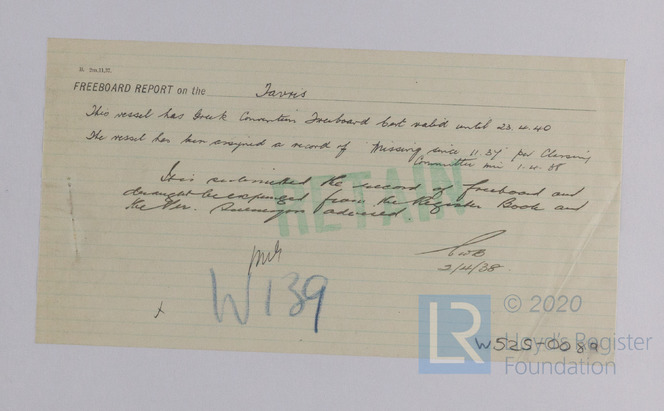 FREEBOARD REPORT on the Tavris
This vessel has Greek Convention Freeboard Cert valid until 23.4.40
The vessel has been assigned a record of "Missing since 11.37" per Classing
Committee min 1.4.38
It is submitted the record of freeboard and
draught be expunged from the Register Book and
the Ner. Surveyor advised
RETAIN
CWB
2/4/38
W139
x
LR
© 2020
Lloyd's Register
Foundation
W525-0089